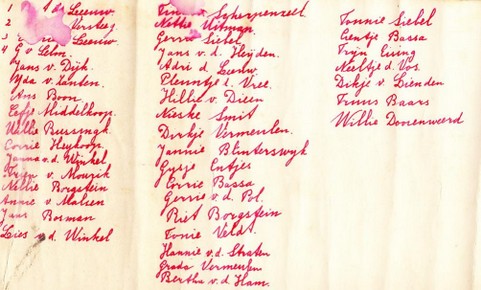 1 d Leeuw.
2 Versteeg.
3 Leeuw
4 G v Selm.
Jans v. Dijk.
Yda v. Zanten.
Ans Boon.
Eefje Middelkoop.
Willie Bursingh.
Corrie Heykoop.
Janna v.d. Winkel
Trijn v. Mourik
Nellie Borgstein
Annie v Malsen
Jans Bosman
Lies v.d. Winkel
v. Scherpenzeel.
Nettie Uitman.
Gerrie Siebel.
Jans v.d. Heijden.
Adri d. Leeuw.
Pleuntje t. Vree.
Hillie v. Dieen
Naeske Smit
Dirkje Vermeulen.
Jannie Blinterswyk
Gijsje Entjes
Corrie Bassa
Gerrie v.d. Pol.
Riet Borgstein
Tonie Veldt.
Hannie v.d. Straten
Grada Vermeulen
Bertha v.d. Ham.
Tonnie Siebel
Eentje Bassa
Tryn Euing
Neeltje d. Vos.
Dikje v. Lienden
Truus Baars
Willie Doorenweerd